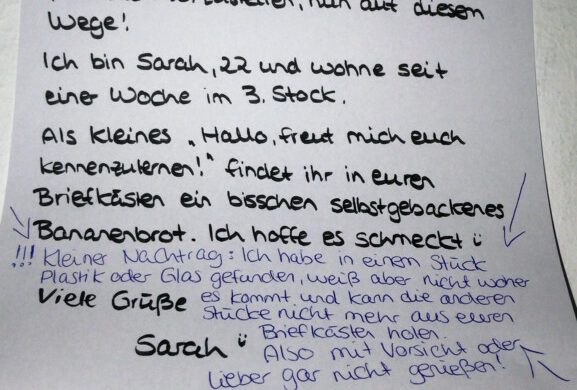 nun auf diesem
Wege!
Ich bin Sarah, 22 und wohne seit
einer Woche im 3. Stock.
Als kleines „Hallo, freut mich euch
kennenzulernen!" findet ihr in euren
Briefkästen ein bisschen selbstgebackenes
Bananenbrot. Ich hoffe es schmeckt ü
!!! Kleiner Nachtrag: Ich habe in einem Stück
Plastik oder Glas gefunden, weiß aber nicht woher
es kommt und kann die anderen
Stücke nicht mehr aus euren
Briefkästen holen.
Also mit Vorsicht oder
lieber gar nicht genießen!
Viele Grüße
Sarah ü